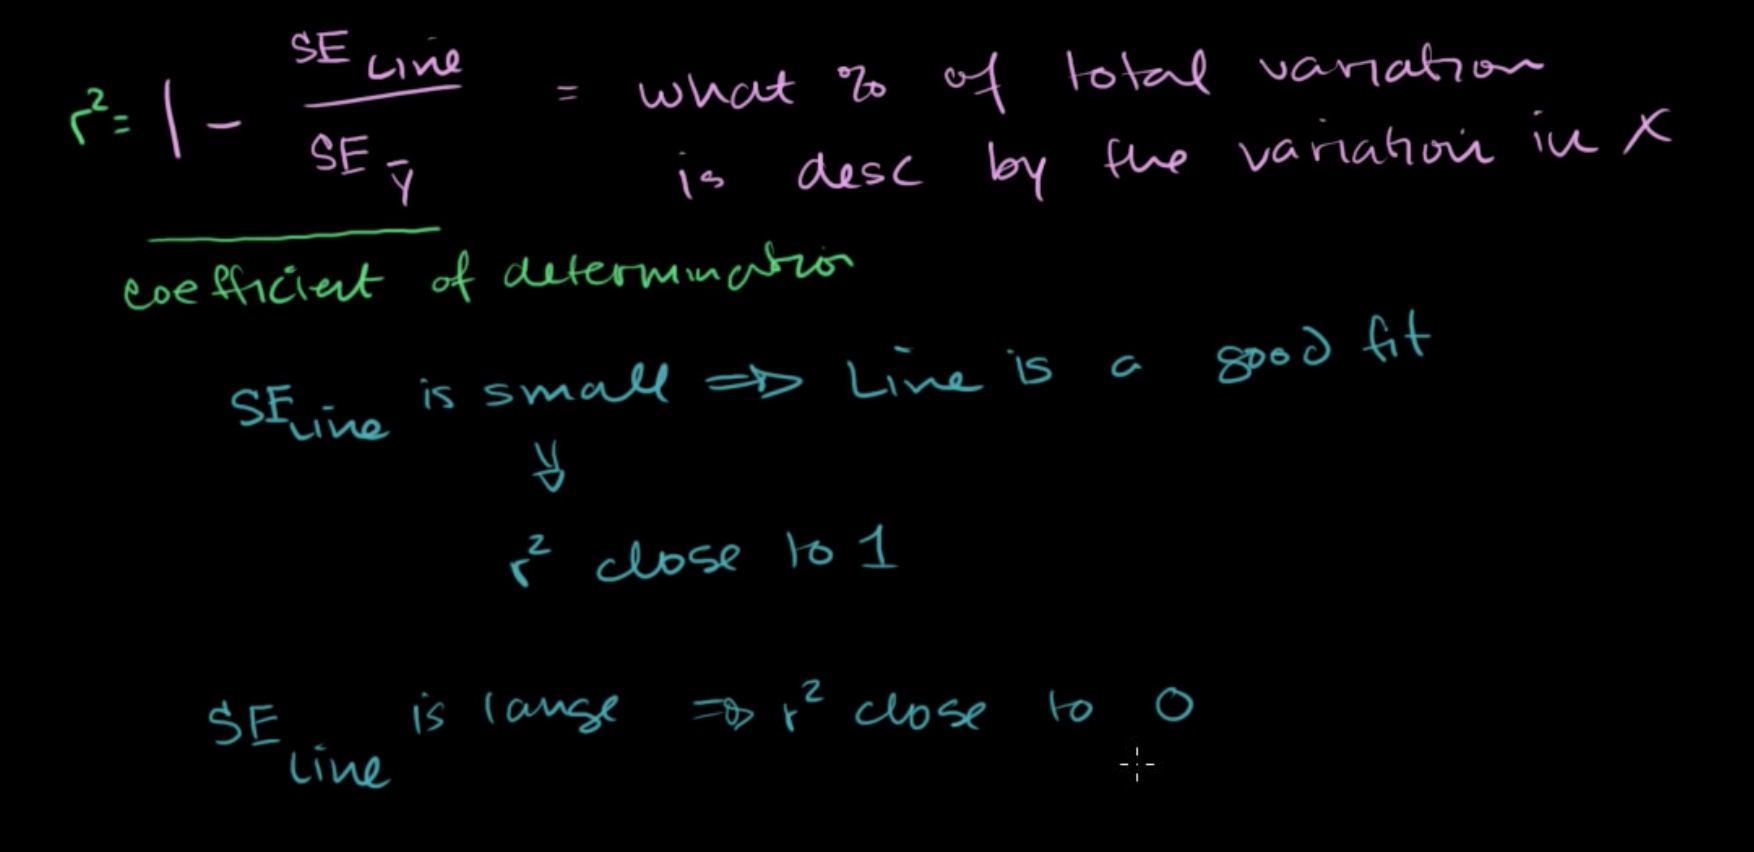 r² = 1 - SE Line / SE ȳ = what % of total variation
is desc by the variation in x
coefficient of determination
SE Line is small ⇒ Line is a good fit
⇓
r² close to 1
SE Line is large ⇒ r² close to 0